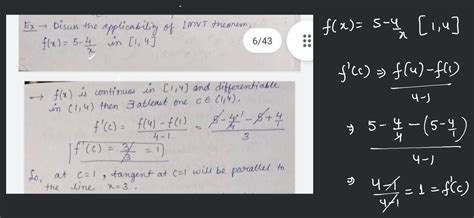 Ex → Disuss the applicability of LMVT theorem,
f(x) = 5 - 4/x in [1, 4]
6/43
→ f(x) is continuos in [1, 4] and differentiable
in (1, 4) then ∃ atleast one c ∈ (1, 4).
f'(c) = f(4) - f(1) / 4 - 1 = 5 - 4/4 - 5 + 4/1 / 3
f'(c) = 3/3 = 1
So, at c = 1, tangent at c = 1 will be parallel to
the line x = 3.
f(x) = 5 - 4/x [1, 4]
f'(c) ⇒ f(4) - f(1) / 4 - 1
⇒ 5 - 4/4 - (5 - 4/1) / 4 - 1
⇒ 4 - 1 / 4 - 1 = 1 = f'(c)